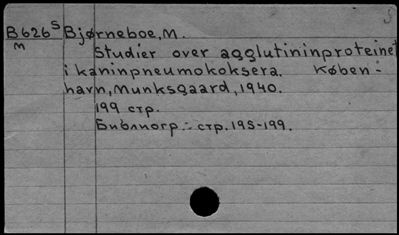 B626 S Bjørneboe, M.
m Studier over agglutininproteinet
i kaninpneumokoksera. Køben-
havn, Munksgaard, 1940.
199 стр.
Библиогр.: стр. 195-199.